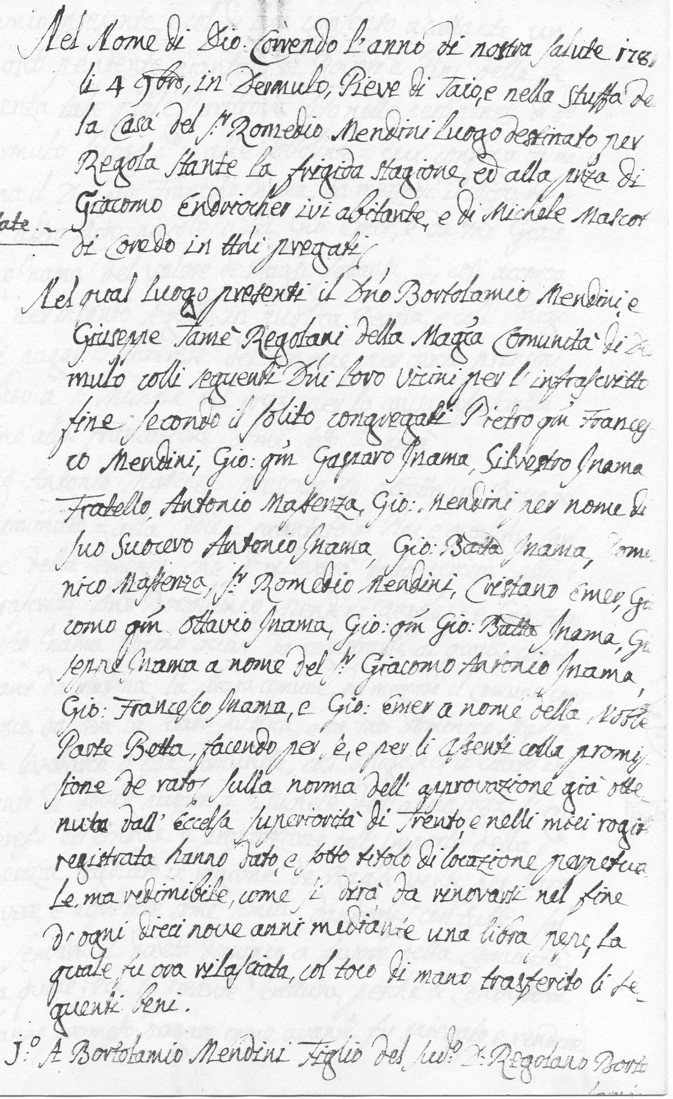 Nel Nome di Dio: Correndo l'anno di nostra salute 178
li 4 9bro, in Dermulo, Pieve di Taio, e nella stuffa de
la Casa del Sr. Romedio Mendini luogo destinato per
Regola stante la frigida stagione, ed alla prza di
Giacomo Endrocher ivi abitante, e di Michele Mascot
di Coredo in ttni pregati
Nel qual luogo presenti il Dno Bortolamio Mendini e
Giuseppe Tamè Regolani della Magca Comunità di De
mulo colli seguenti Dni loro Vicini per l'infrascritto
fine secondo il solito congregati Pietro qm Frances
co Mendini, Gio: qm Gasparo Inama, Silvestro Inama
Fratello Antonio Massenza, Gio: Mendini per nome di
suo Suocero Antonio Inama Gio: Batta Inama, Dome
nico Massenza, Sr. Romedio Mendini, Crestano Emer, Gia
como qm Ottavio Inama, Gio: qm Gio: Batta Inama, Gi
seppe Inama a nome del Sr. Giacomo Antonio Inama,
Gio: Francesco Inama, e Gio: Emer a nome della Noble
Parte Betta, facendo per sè, e per li assenti colla promis
sione de rato, sulla norma dell'approvazione già otte
nuta dall'Eccelsa superiorità di Trento, e nelli miei rogiti
registrata hanno dato e sotto titolo di locazione perpetua
le ma redimibile, come si dirà da rinovarsi nel fine
d'ogni dieci nove anni mediante una libra pepe, la
quale fu ora rilasciata, col toco di mano trasferito li se
guenti beni.
J.o A Bortolamio Mendini Figlio del sudo Regolano Borto